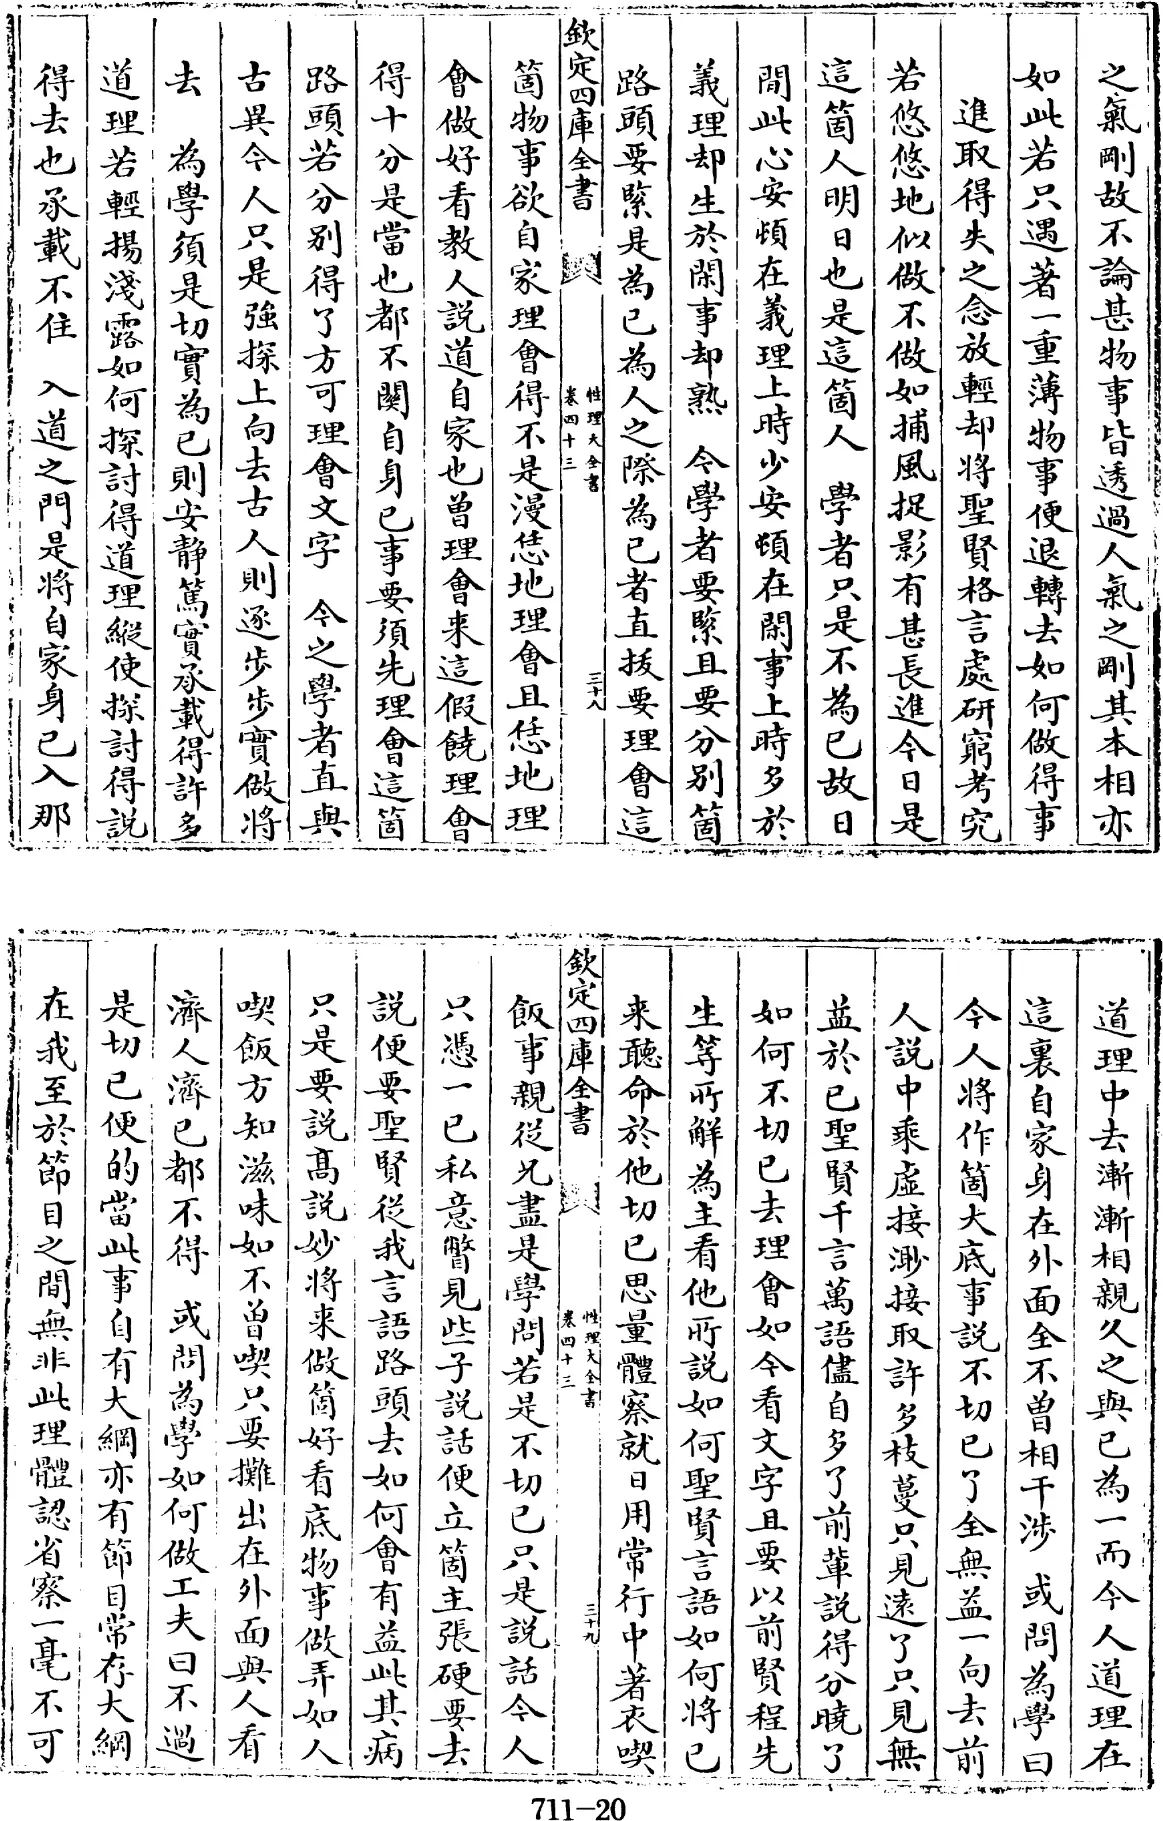 之氣剛故不論甚物事皆透過人氣之剛其本相亦
如此若只遇著一重薄物事便退轉去如何做得事
進取得失之念放輕却將聖賢格言處研窮考究
若悠悠地似做不做如捕風捉影有甚長進今日是
這箇人明日也是這箇人　學者只是不為已故日
間此心安頓在義理上時少安頓在閒事上時多於
義理却生於閒事却熟　今學者要緊且要分別箇
路頭要緊是為已為人之際為已者直拔要理會這
欽定四庫全書
性理大全書
卷四十三
三十八
箇物事欲自家理會得不是漫恁地理會且恁地理
會做好看教人説道自家也曾理會来這假饒理會
得十分是當也都不關自身已事要須先理會這箇
路頭若分別得了方可理會文字　今之學者直與
古異今人只是強探上向去古人則逐步步實做將
去　為學須是切實為已則安靜篤實承載得許多
道理若輕揚淺露如何探討得道理縱使探討得説
得去也承載不住　入道之門是將自家身已入那
道理中去漸漸相親久之與已為一而今人道理在
這裏自家身在外面全不曾相干涉　或問為學曰
今人將作箇大底事説不切已了全無益一向去前
人説中乘虛接渺接取許多枝蔓只見遠了只見無
益於已聖賢千言萬語儘自多了前輩説得分曉了
如何不切已去理會如今看文字且要以前賢程先
生等所解為主看他所説如何聖賢言語如何將已
来聽命於他切已思量體察就日用常行中著衣喫
欽定四庫全書
性理大全書
卷四十三
三十九
飯事親從兄盡是學問若是不切已只是説話今人
只憑一已私意瞥見些子説話便立箇主張硬要去
説便要聖賢從我言語路頭去如何會有益此其病
只是要説高説妙將来做箇好看底物事做弄如人
喫飯方知滋味如不曾喫只要攤出在外面與人看
濟人濟已都不得　或問為學如何做工夫曰不過
是切已便的當此事自有大綱亦有節目常存大綱
在我至於節目之間無非此理體認省察一毫不可
711-20